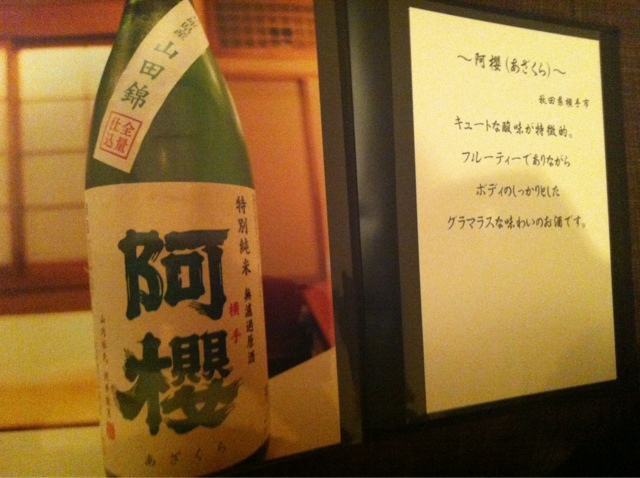 山田錦
全量
仕込
特別純米 無濾過原酒
横手
阿櫻
あざくら
～阿櫻(あざくら)～
秋田県横手市
キュートな酸味が特徴的。
フルーティーでありながら
ボディのしっかりとした
グラマラスな味わいのお酒です。